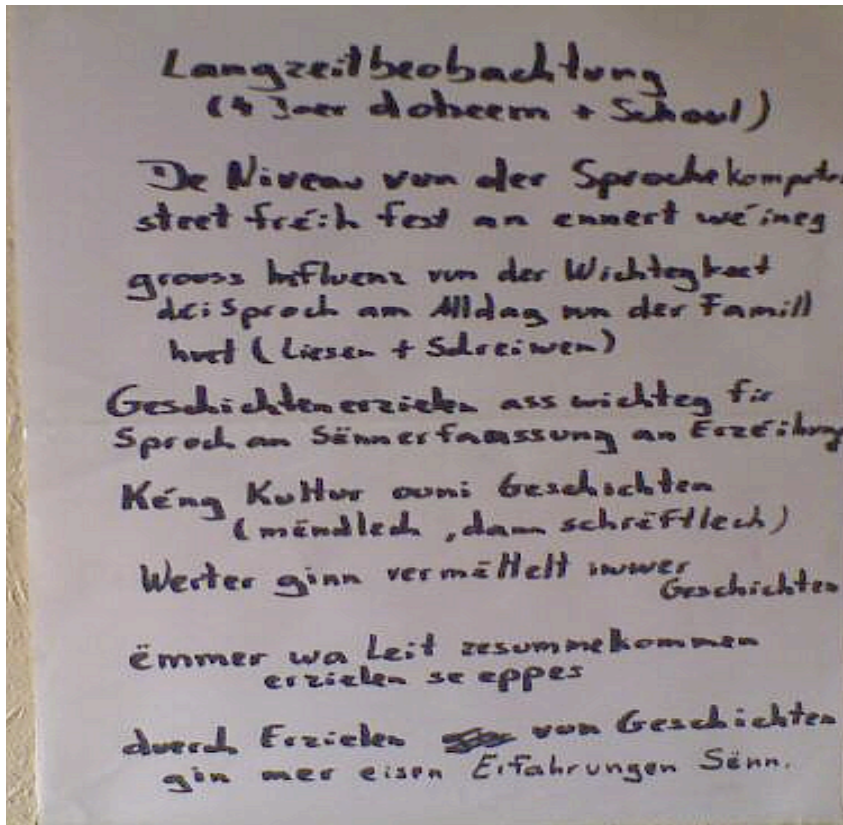 Langzeitbeobachtung
(4 Joer doheem + Schoul)
De Niveau vun der Sprochekompete
steet fréih fest an ennert wéineg
grooss Influenz vun der Wichtegkeet
déi Sproch am Alldag vun der Famill
huet (Liesen + Schreiwen)
Geschichtenerzielen ass wichteg fir
Sproch an Sënnerfaassung an Erzéihung
Kéng Kultur ouni Geschichten
(mëndlech, dann schrëftlech)
Werter ginn vermëttelt iwwer
Geschichten
ëmmer wa Leit zesummekommen
erzielen se eppes
duerch Erzielen vun Geschichten
gin mer eisen Erfahrungen Sënn.